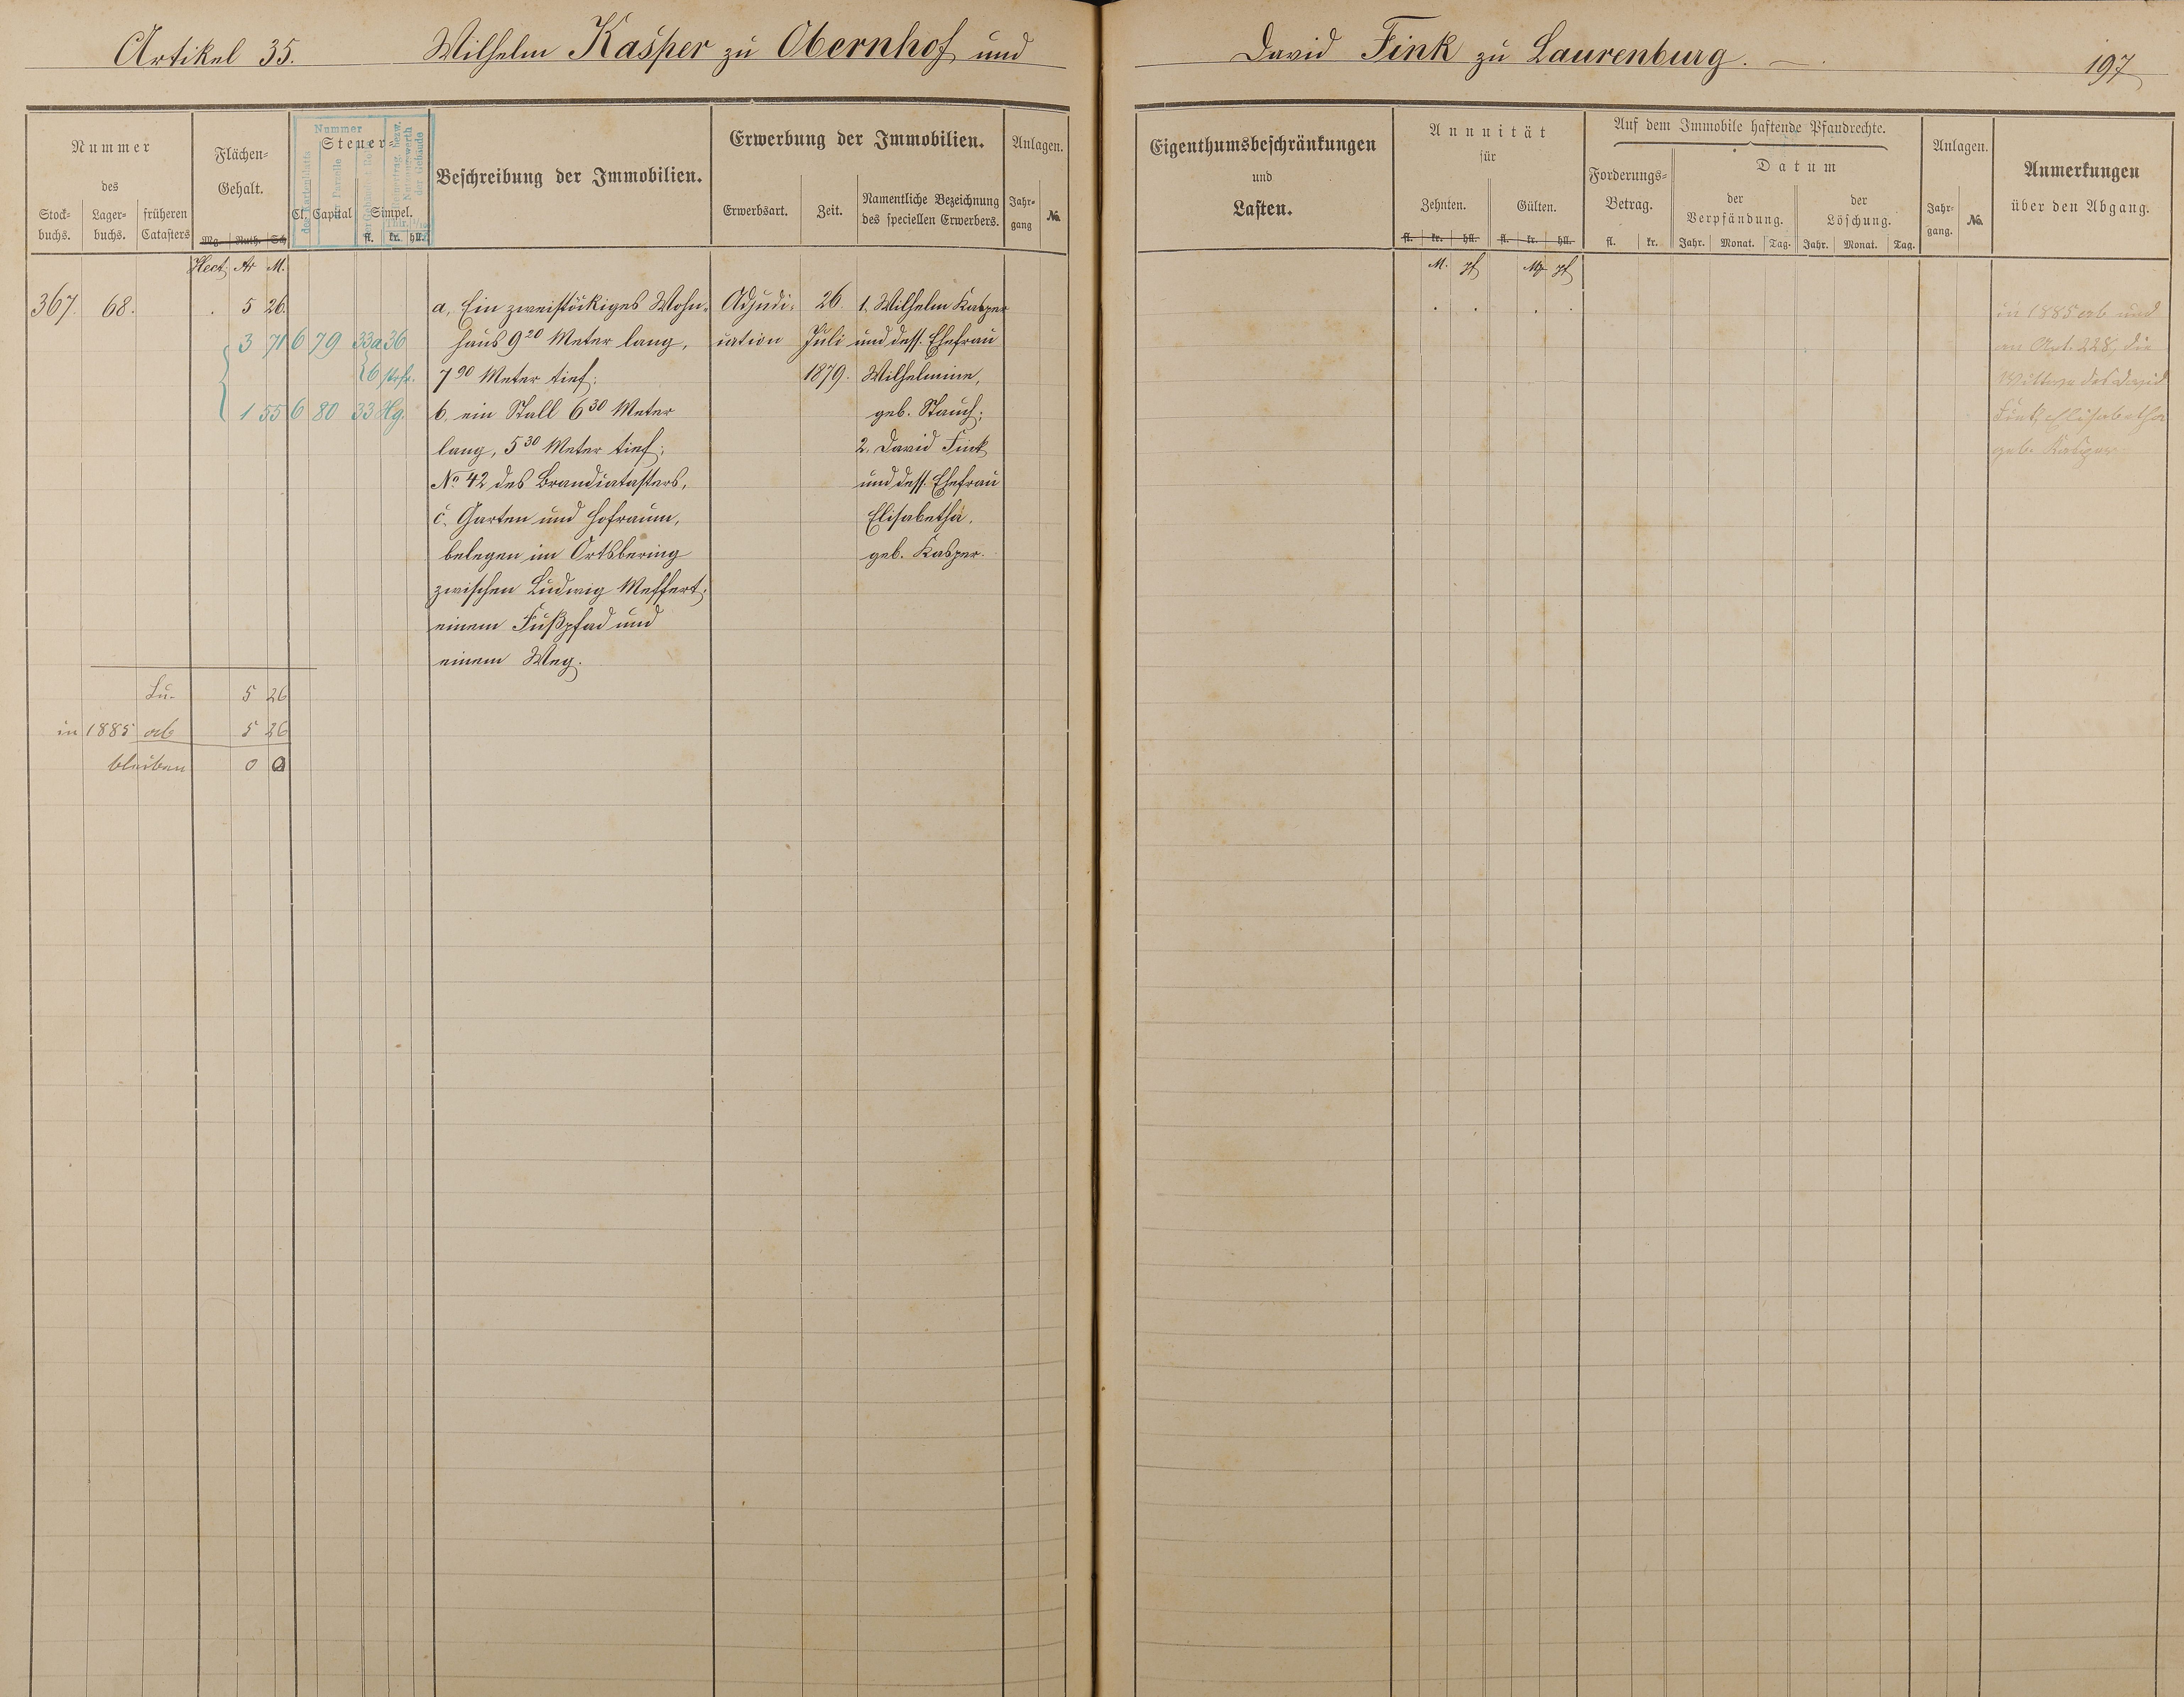 Artikel 35. Wilhelm Kasper zu Obernhof und David Fink zu Laurenburg. 197
Nummer
des
Stock-
buchs.
Lager-
buchs.
früheren
Catasters
Flächen-
Gehalt.
Mg. Ruth. Sch
Nummer
Steuer-
Cl. Capital Simpel.
fl. kr. hll.
Beschreibung der Immobilien.
Erwerbung der Immobilien.
Erwerbsart.
Zeit.
Namentliche Bezeichnung
des speciellen Erwerbers.
Anlagen.
Jahr-
gang
№
Eigenthumsbeschränkungen
und
Lasten.
Annuität
für
Zehnten. Gülten.
fl. kr. hll. fl. kr. hll.
Auf dem Immobile haftende Pfandrechte.
Forderungs-
Betrag.
fl. kr.
Datum
der
Verpfändung.
Jahr. Monat. Tag.
der
Löschung.
Jahr. Monat. Tag.
Anlagen.
Jahr-
gang.
№
Anmerkungen
über den Abgang.
Hect. Ar M.
M. pf M pf
367. 68. 5 26.
3 71 6 79 33a 36
1 55 6 80 33 Hg.
a, Ein zweistöckiges Wohn-
haus 9 20 Meter lang,
7 90 Meter tief;
b, ein Stall 6 30 Meter
lang, 5 30 Meter tief;
No 42 des Brandcatasters,
c, Garten und Hofraum,
belegen im Ortsbering
zwischen Ludwig Meffert,
einem Fußpfad und
einem Weg.
Adjudi-
cation
26.
Juli
1879.
1. Wilhelm Kasper
und dess. Ehefrau
Wilhelmine,
geb. Stauch;
2. David Fink
und dess. Ehefrau
Elisabetha,
geb. Kasper.
in 1885 ab und
an Art. 228, die
Wittwe des David
Fink, Elisabetha
geb. Kasper
Su. 5 26
in 1885 ab 5 26
bleiben 0 0